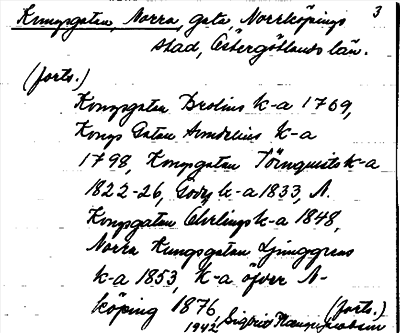 3
Kungsgatan, Norra, gata, Norrköpings
stad, Östergötlands län.
(forts.)
Kongsgatan Brolins k-a 1769,
Kongs Gatan Arndelius k-a
1798, Kongsgatan Törnquists k-a
1822-26, k-a 1833, N.
Kongsgatan Ehrlings k-a 1848,
Norra Kungsgatan Ljunggrens
k-a 1853, K-a öfver N-
köping 1876
(forts.)
1942 Sigurd